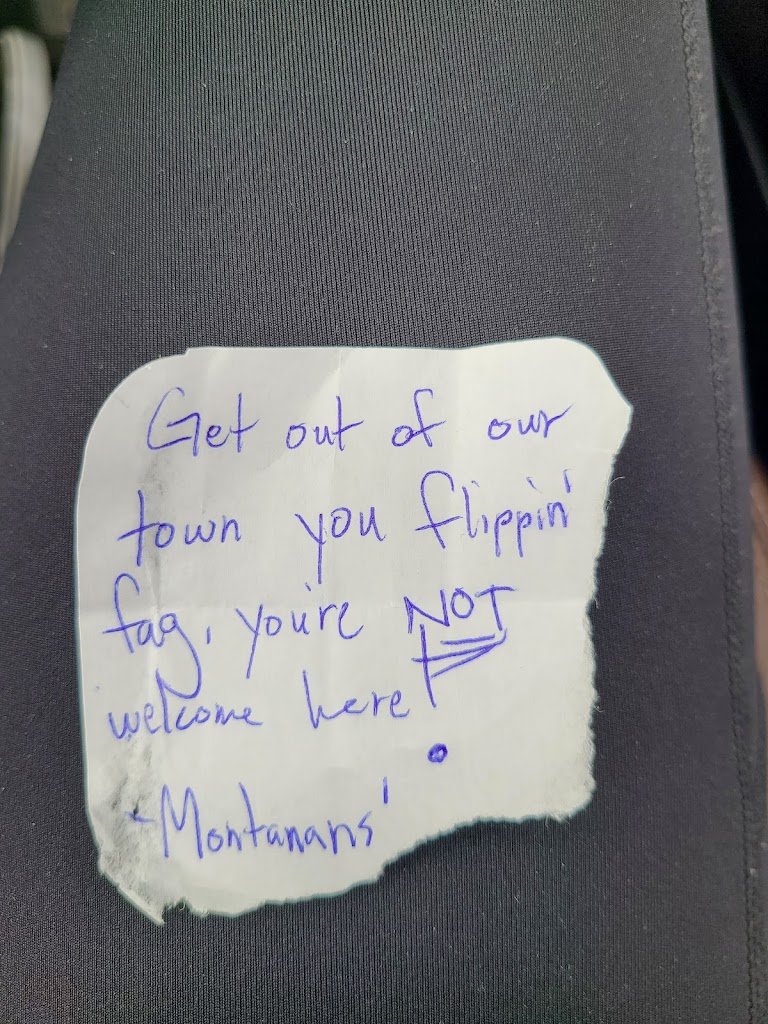 Get out of our
town you flippin'
fag, you're NOT
welcome here!
-Montanans'